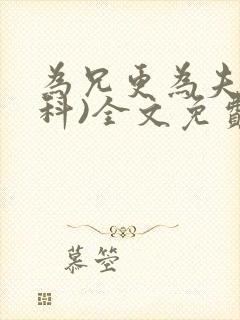 為兄更為夫
科)全文免費
慕箜